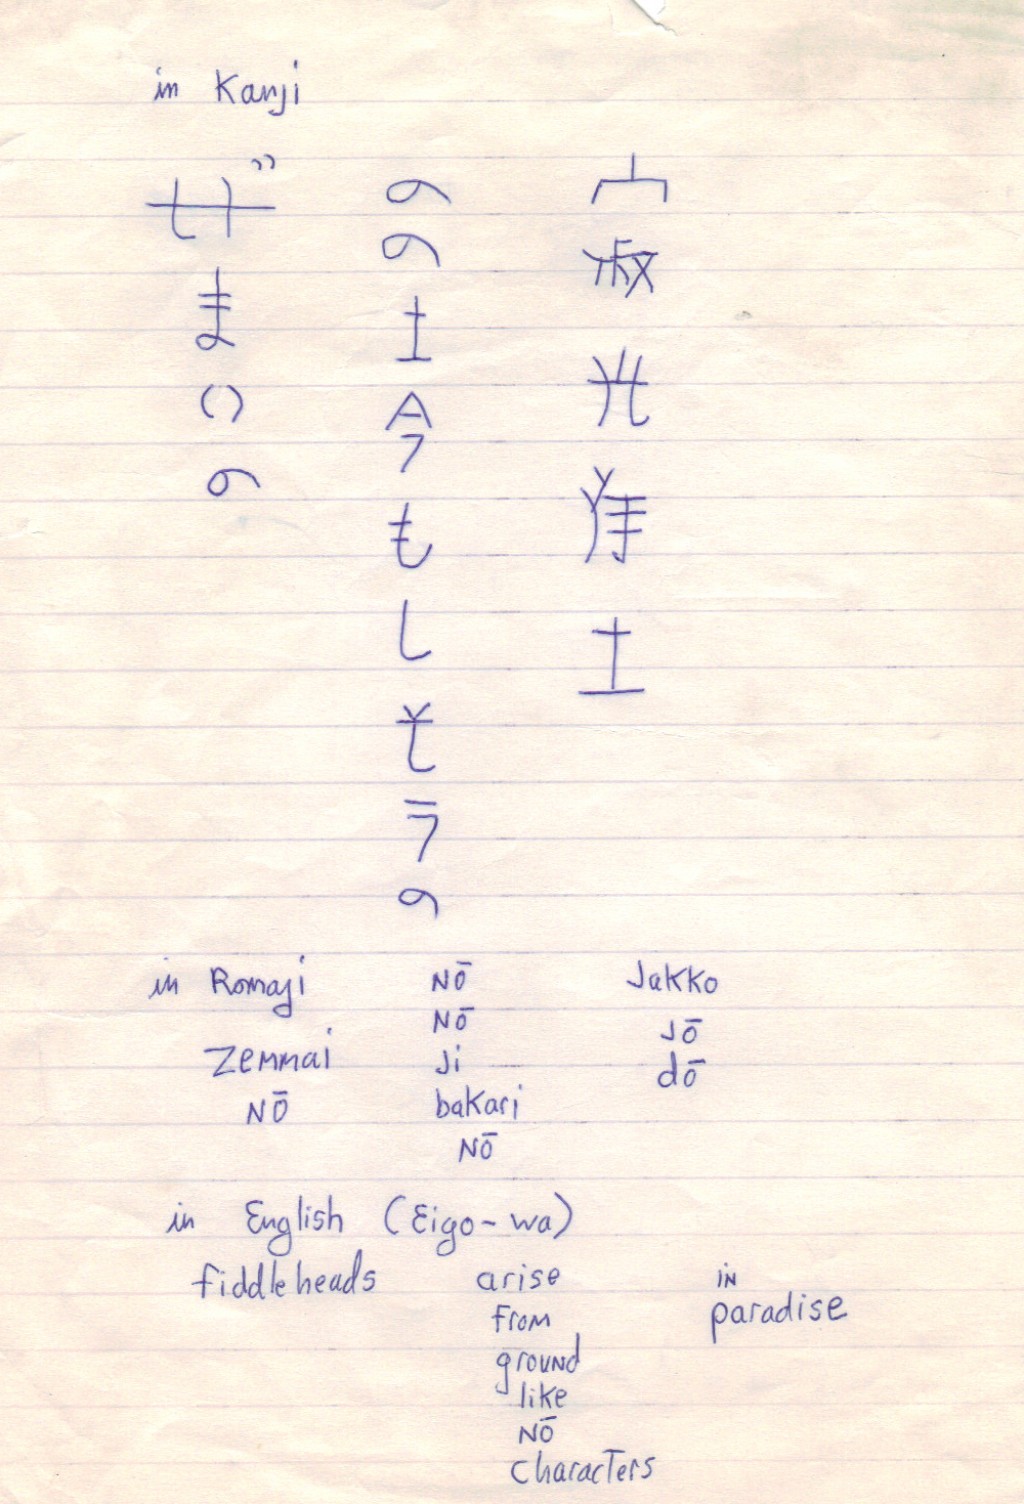 in Kanji
ぜまいの
のの土
もし
の
寂光浄土
in Romaji
Zemmai
Nō
Nō
Nō
Ji
bakari
Nō
Jakko
Jō
dō
in English (Eigo-wa)
fiddleheads
arise
from
ground
like
Nō
characters
in
paradise